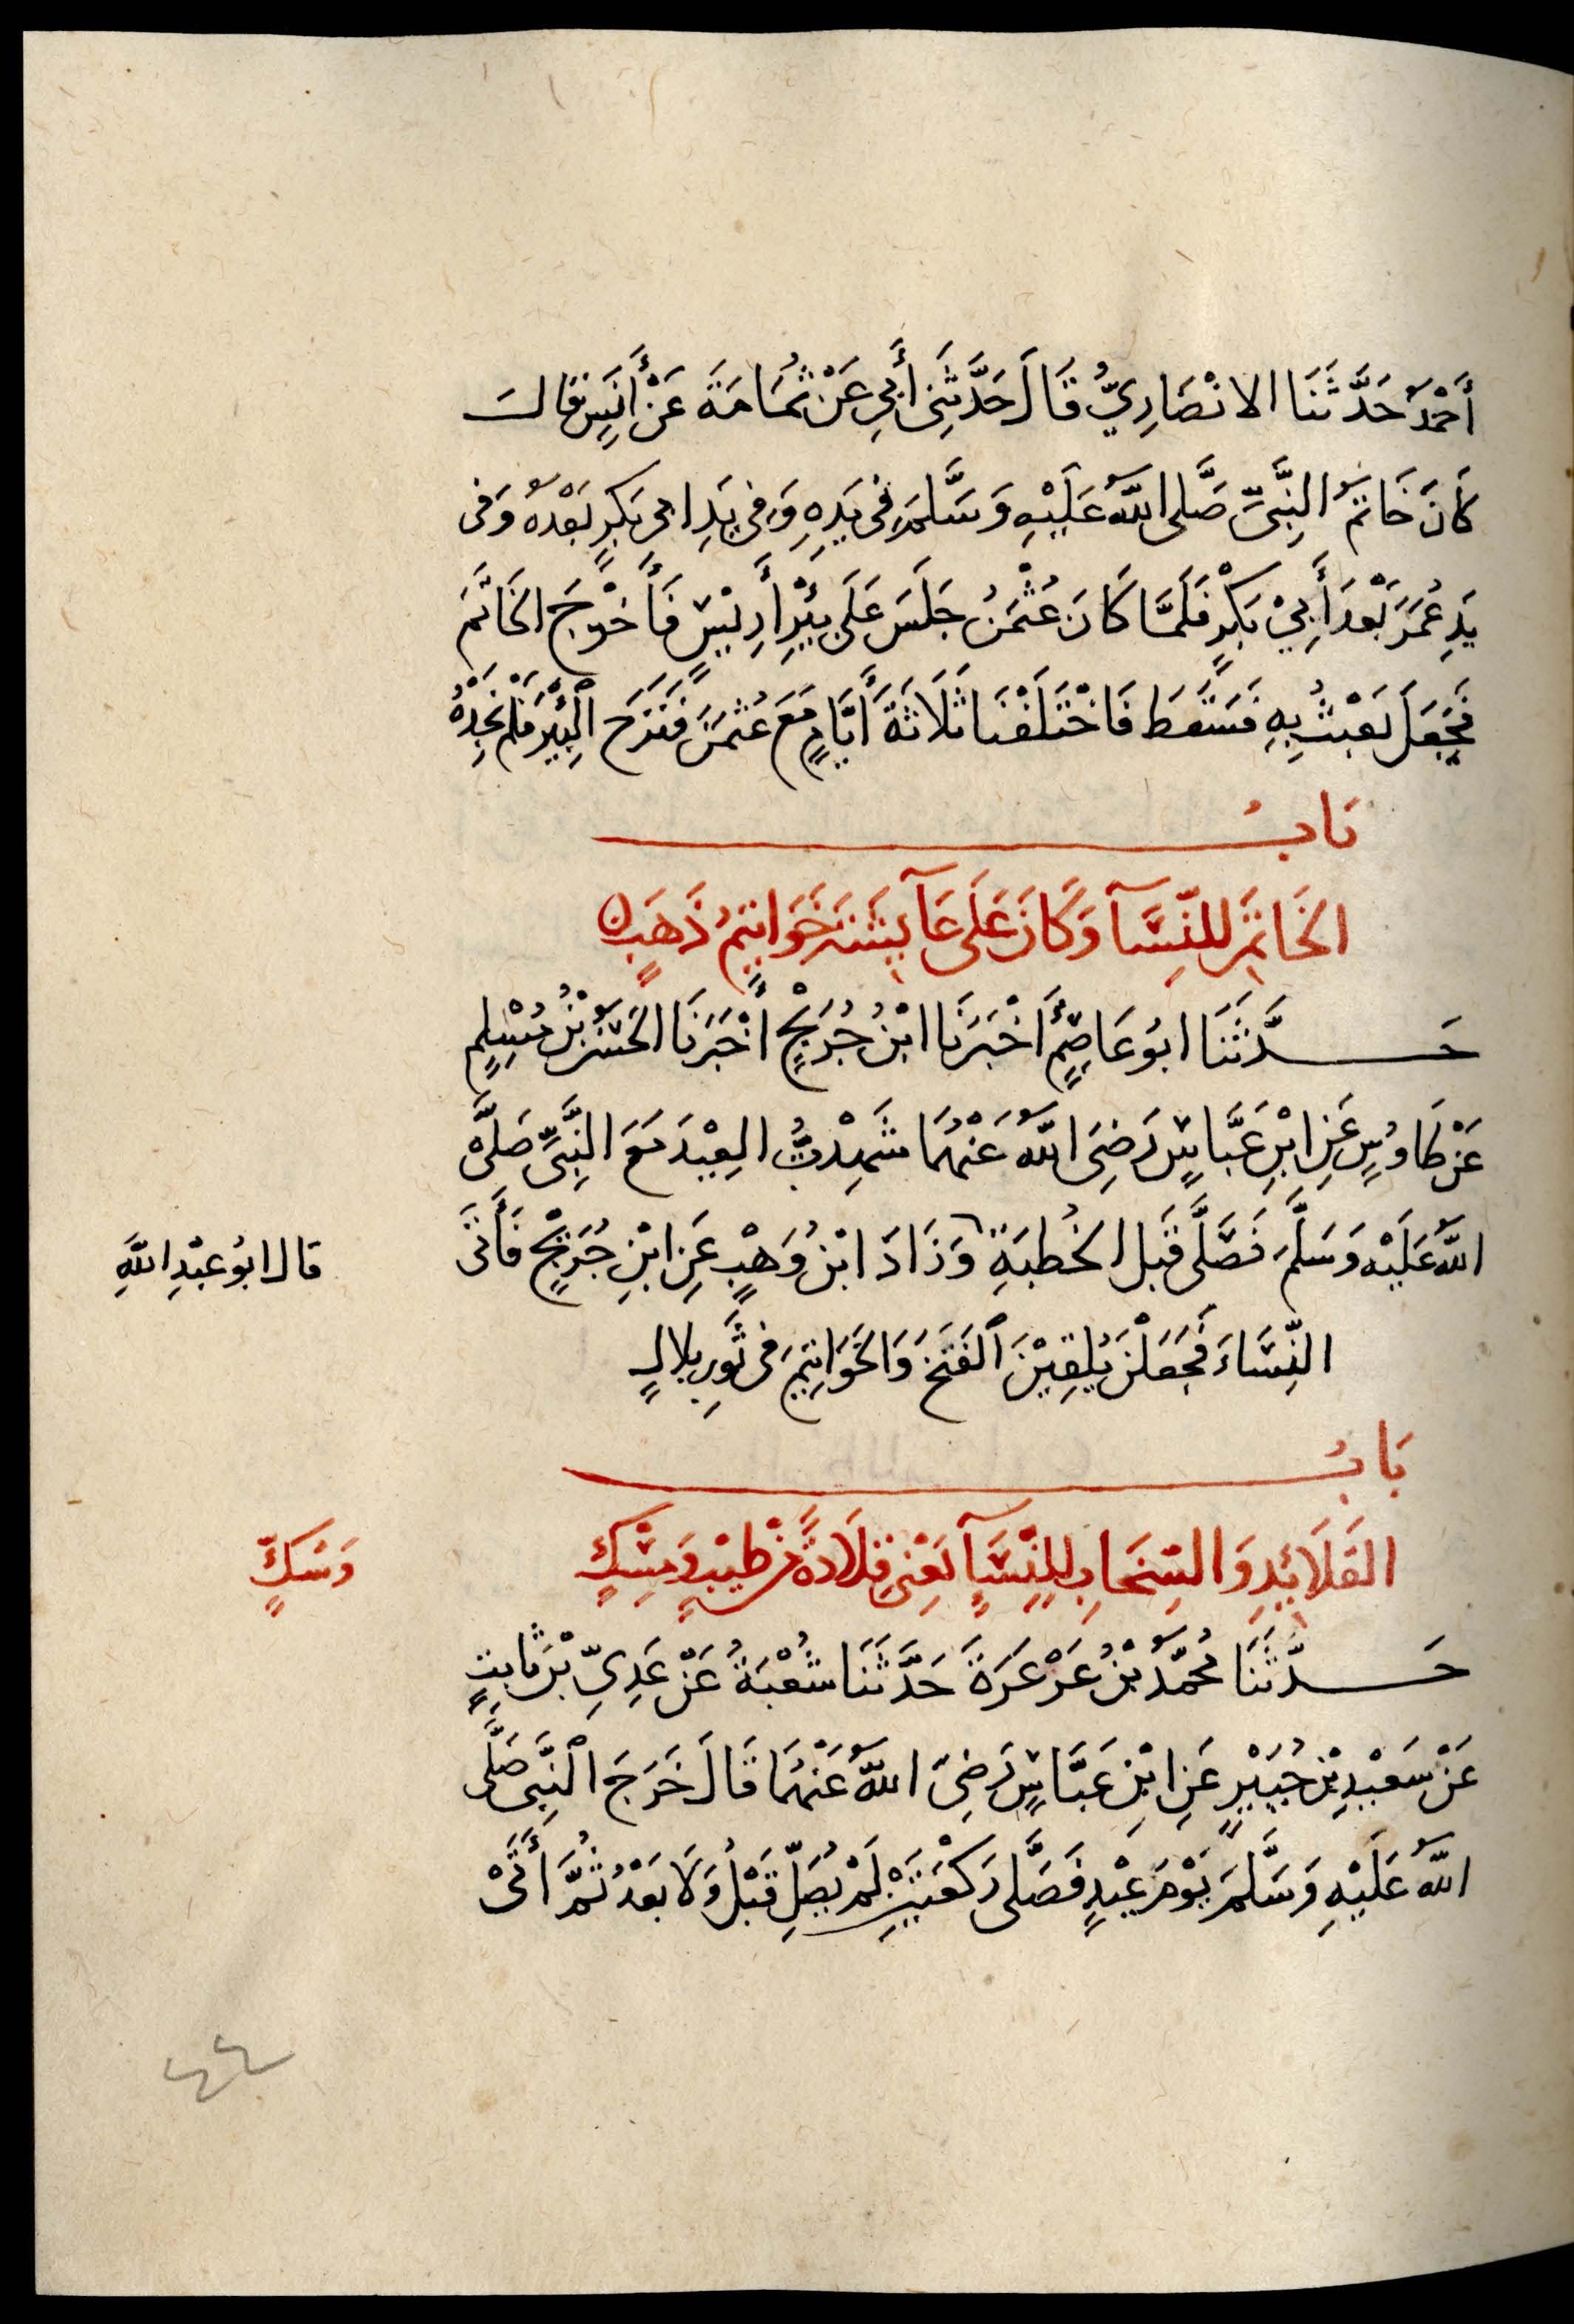 أَحْمَدُ حَدَّثَنَا الانْصَارِيُّ قَالَ حَدَّثَنِى أَبِي عَنْ ثُمَامَةَ عَنْ أَنَسٍ قالَ
كَانَ خَاتَمُ النَّبِىِّ صَلَّى اللَّهُ عَلَيْهِ وَسَلَّمَ فِى يَدِهِ وَفِى يَدِ ابى بَكْرٍ بَعْدَهُ وَفى
يَدِ عُمَرَ بَعْدَ أَبِيْ بَكْرٍ فَلَمَّا كَانَ عُثْمَنُ جَلَسَ عَلَى بِئْرِ أَرِيْسٍ فَأَخْرَجَ الخَاتَمَ
فَجَعَلَ يَعْبَثُ بِهِ فَسَقَطَ فَاخْتَلَفْنَا ثَلَاثَةَ أَيَّامٍ مَعَ عُثْمَنَ فَنَزَحَ الْبِئْرَ فَلَمْ نَجِدْهُ
بَابُ
الخَاتَمِ لِلنِّسَآ وَكَانَ عَلَى عَآيِشَةَ خَوَاتِيمُ ذَهَبٍ
حَدَّثَنَا ابُو عَاصِمٍ أَخْبَرَنَا ابْنُ جُرَيْجٍ أَخْبَرَنَا الحَسَنُ بْنُ مُسْلِمٍ
عَنْ طَاوُسٍ عَنِ ابْنِ عَبَّاسٍ رَضِىَ اللَّهُ عَنْهُمَا شَهِدْتُ العِيْدَ مَعَ النَّبِىِّ صَلَّى
اللَّهُ عَلَيْهِ وَسَلَّمَ فَصَلَّى قَبْلَ الخُطبَةِ وَزَادَ ابْنُ وَهْبٍ عَنِ ابْنِ جُرَيْجٍ فَأَتَى
قال ابُو عَبْدِ اللَّهِ
النِّسَاءَ فَجَعَلْنَ يُلْقِيْنَ الْفَتَخَ وَالخَوَاتِيمَ فى ثَوبِ بِلالٍ
بَابُ
القَلَائِدِ وَالسِّخَابِ لِلنِّسَآ يَعْنِى قِلَادَةً مِنْ طِيْبٍ وَمِسْكٍ
وَسُكٍّ
حَدَّثَنَا مُحَمَّدُ بْنُ عَرْعَرَةَ حَدَّثَنَا شُعْبَةُ عَنْ عَدِىِّ بْنِ ثَابِتٍ
عَنْ سَعِيْدِ بْنِ جُبَيْرٍ عَنِ ابْنِ عَبَّاسٍ رَضِىَ اللَّهُ عَنْهُمَا قَالَ خَرَجَ النَّبِىُّ صَلَّى
اللَّهُ عَلَيْهِ وَسَلَّمَ يَوْمَ عِيْدٍ فَصَلَّى رَكْعَتَيْنِ لَمْ يُصَلِّ قَبْلُ وَلَا بَعْدُ ثُمَّ أَتَى